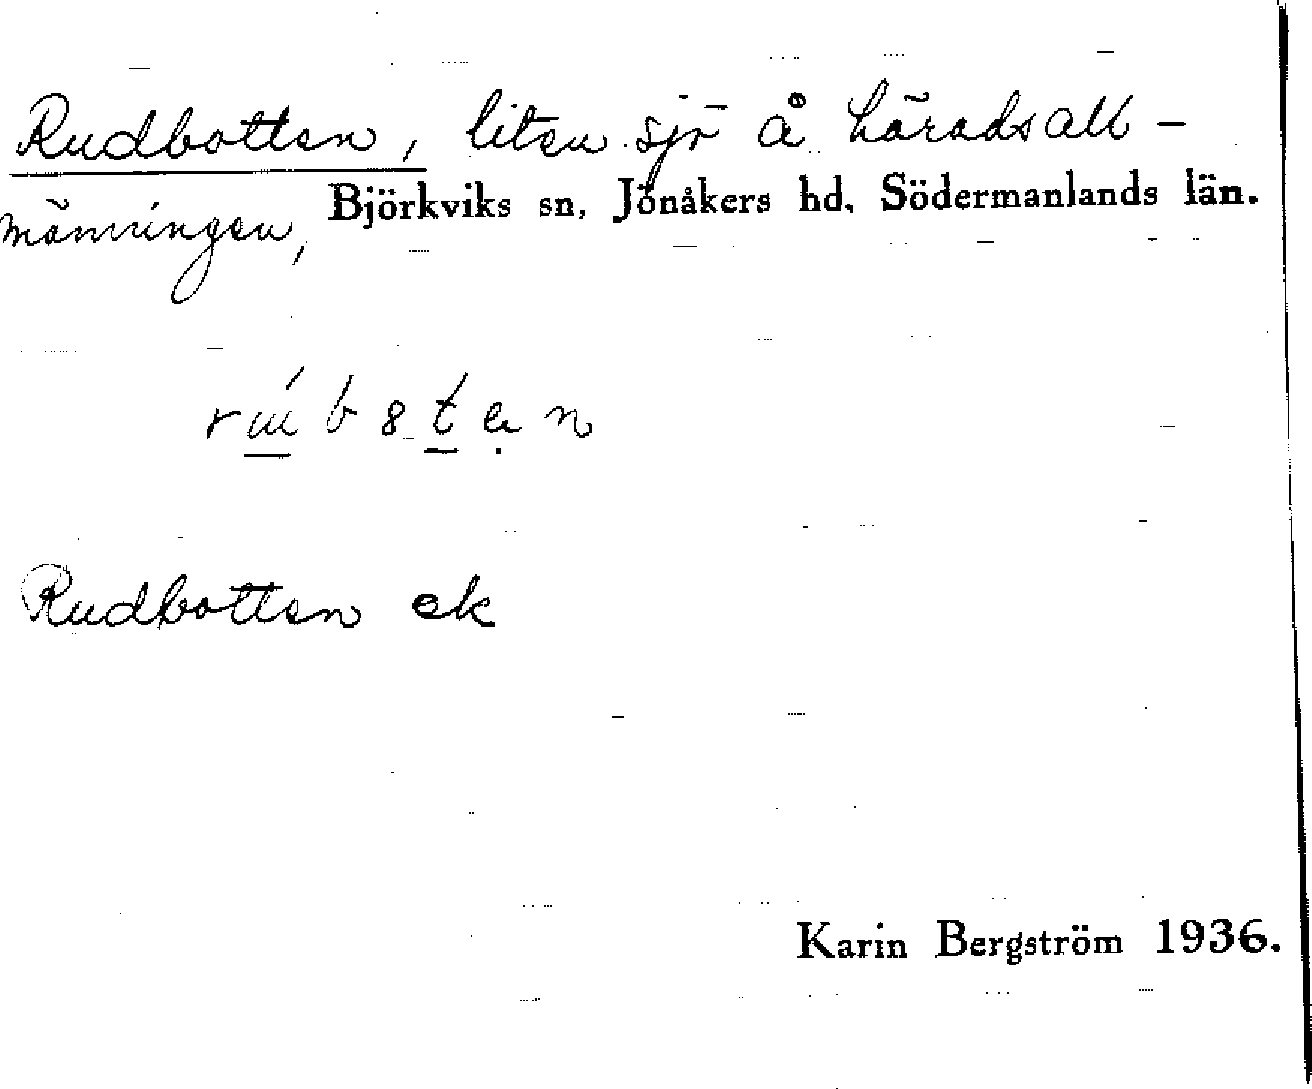 Rudbotten, liten sjö å häradsall-
männingen, Björkviks sn, Jönåkers hd, Södermanlands län.
Rudbotten ek
Karin Bergström 1936.